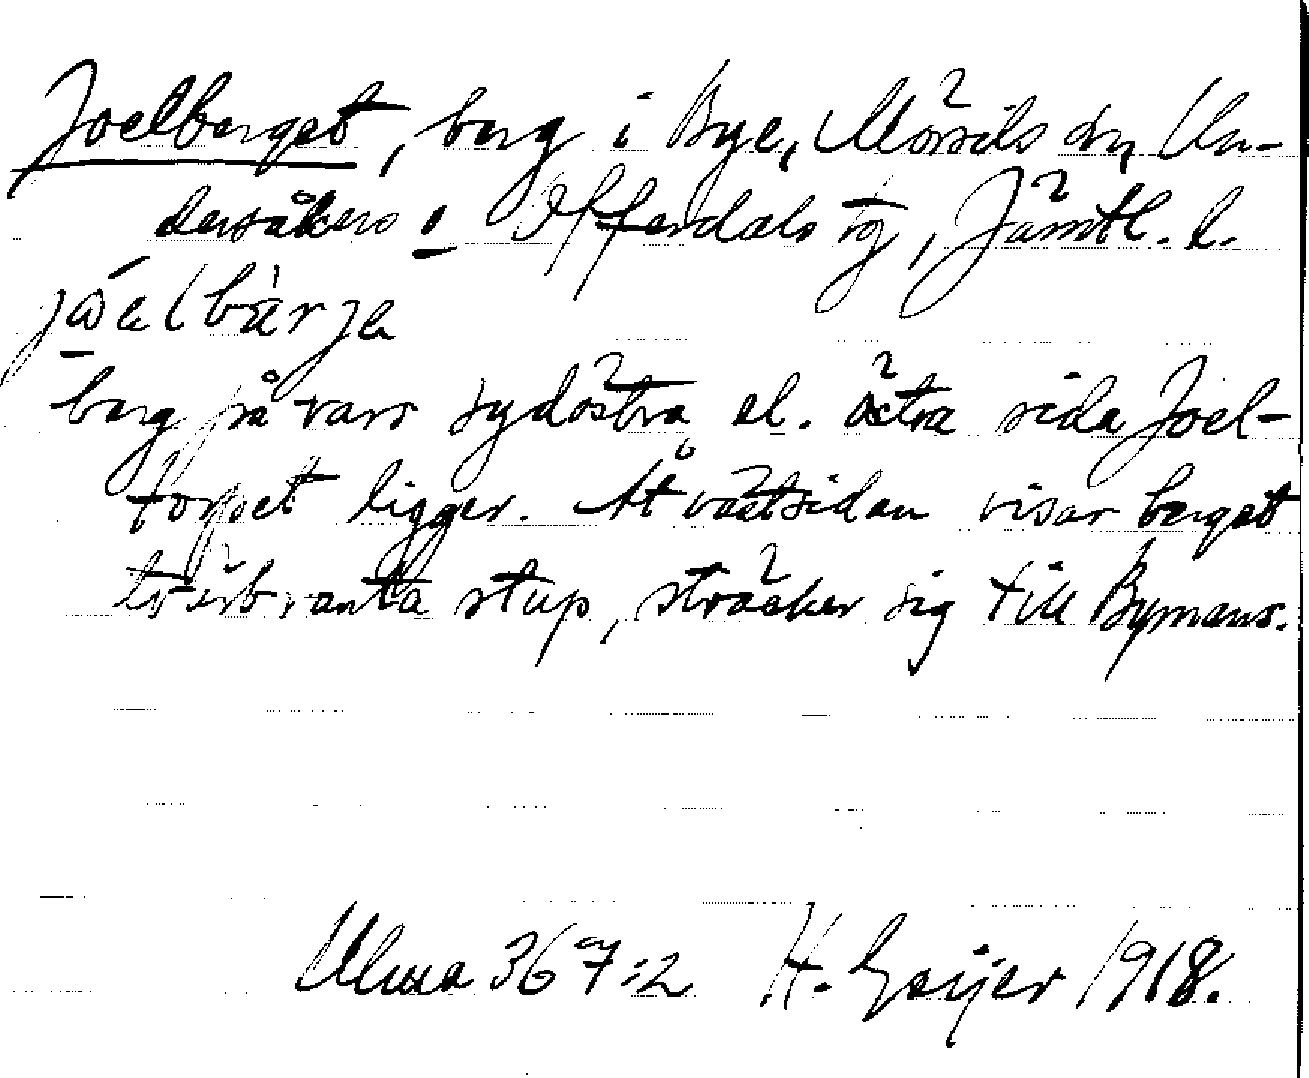 Joelberget, berg i Bye, Mörsils sn, Un-
dersåkers o Offerdals tg, Jämtl. l.
jòelbàrje
berg på vars sydöstra el. östra sida Joel-
torpet ligger. Åt västsidan visar berget
tvärbranta stup, sträcker sig till Bymans.
Ulma 367:2 H. Geijer 1918.